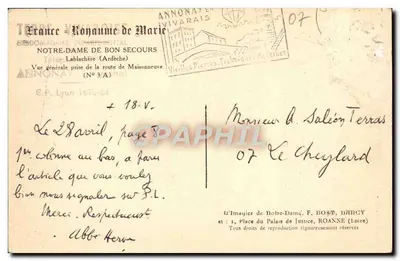 France - Royaume de Marie
NOTRE-DAME DE BON SECOURS
Lablachère (Ardèche)
Vue générale prise de la route de Maisonneuve
(N° 3/A)
ANNONAY
VIVARAIS
07
+ 18.V.
Le 28 avril, page 8
1re colonne au bas, a paru
l'article que vous voulez
bien nous signaler sur S.L.
Merci. Respectueust
Abbé
Monsieur A. Salién Terras
07 Le Cheylard
CPARAMA.COM
G'Imagier de Notre-Dame, F. BOST, DARCY
et : 1, Place du Palais de Justice, ROANNE (Loire)
Tous droits de reproduction rigoureusement réservés